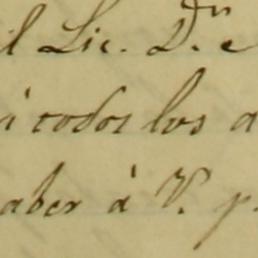 il Lic. D.n
á todos los a
aber á V. p.